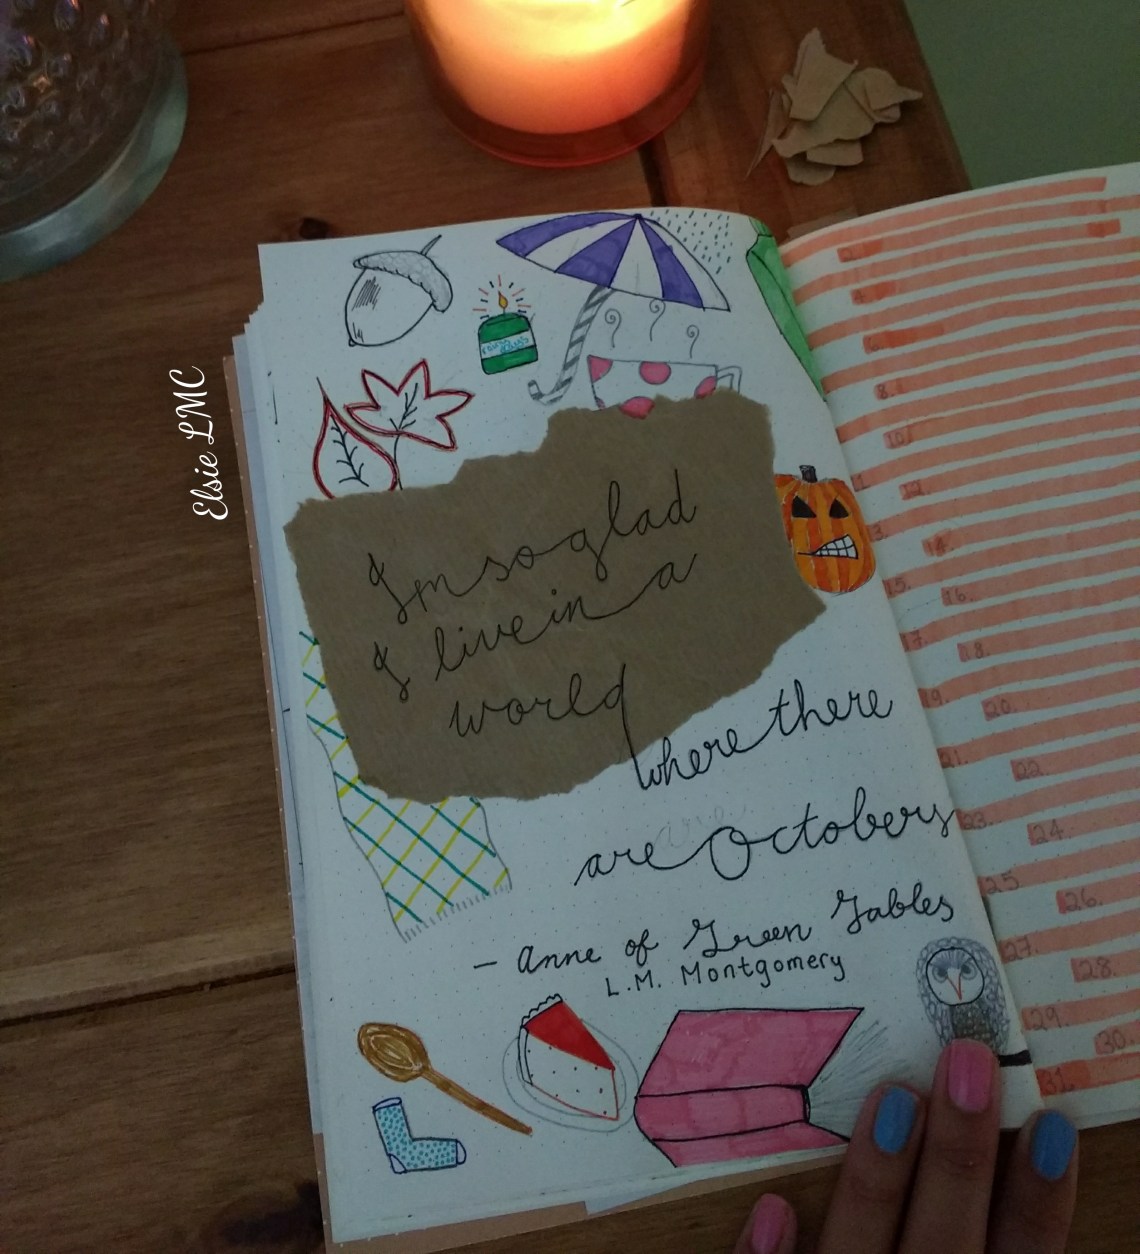 Elsie LMC
I'm so glad
I live in a
world
where there
are Octobers
- Anne of Green Gables
L.M. Montgomery
2.
4.
6.
8.
10.
11.
12.
13.
14.
15.
16.
17.
18.
19.
20.
21.
22.
23.
24.
25
26.
27.
28.
29.
30.
31.